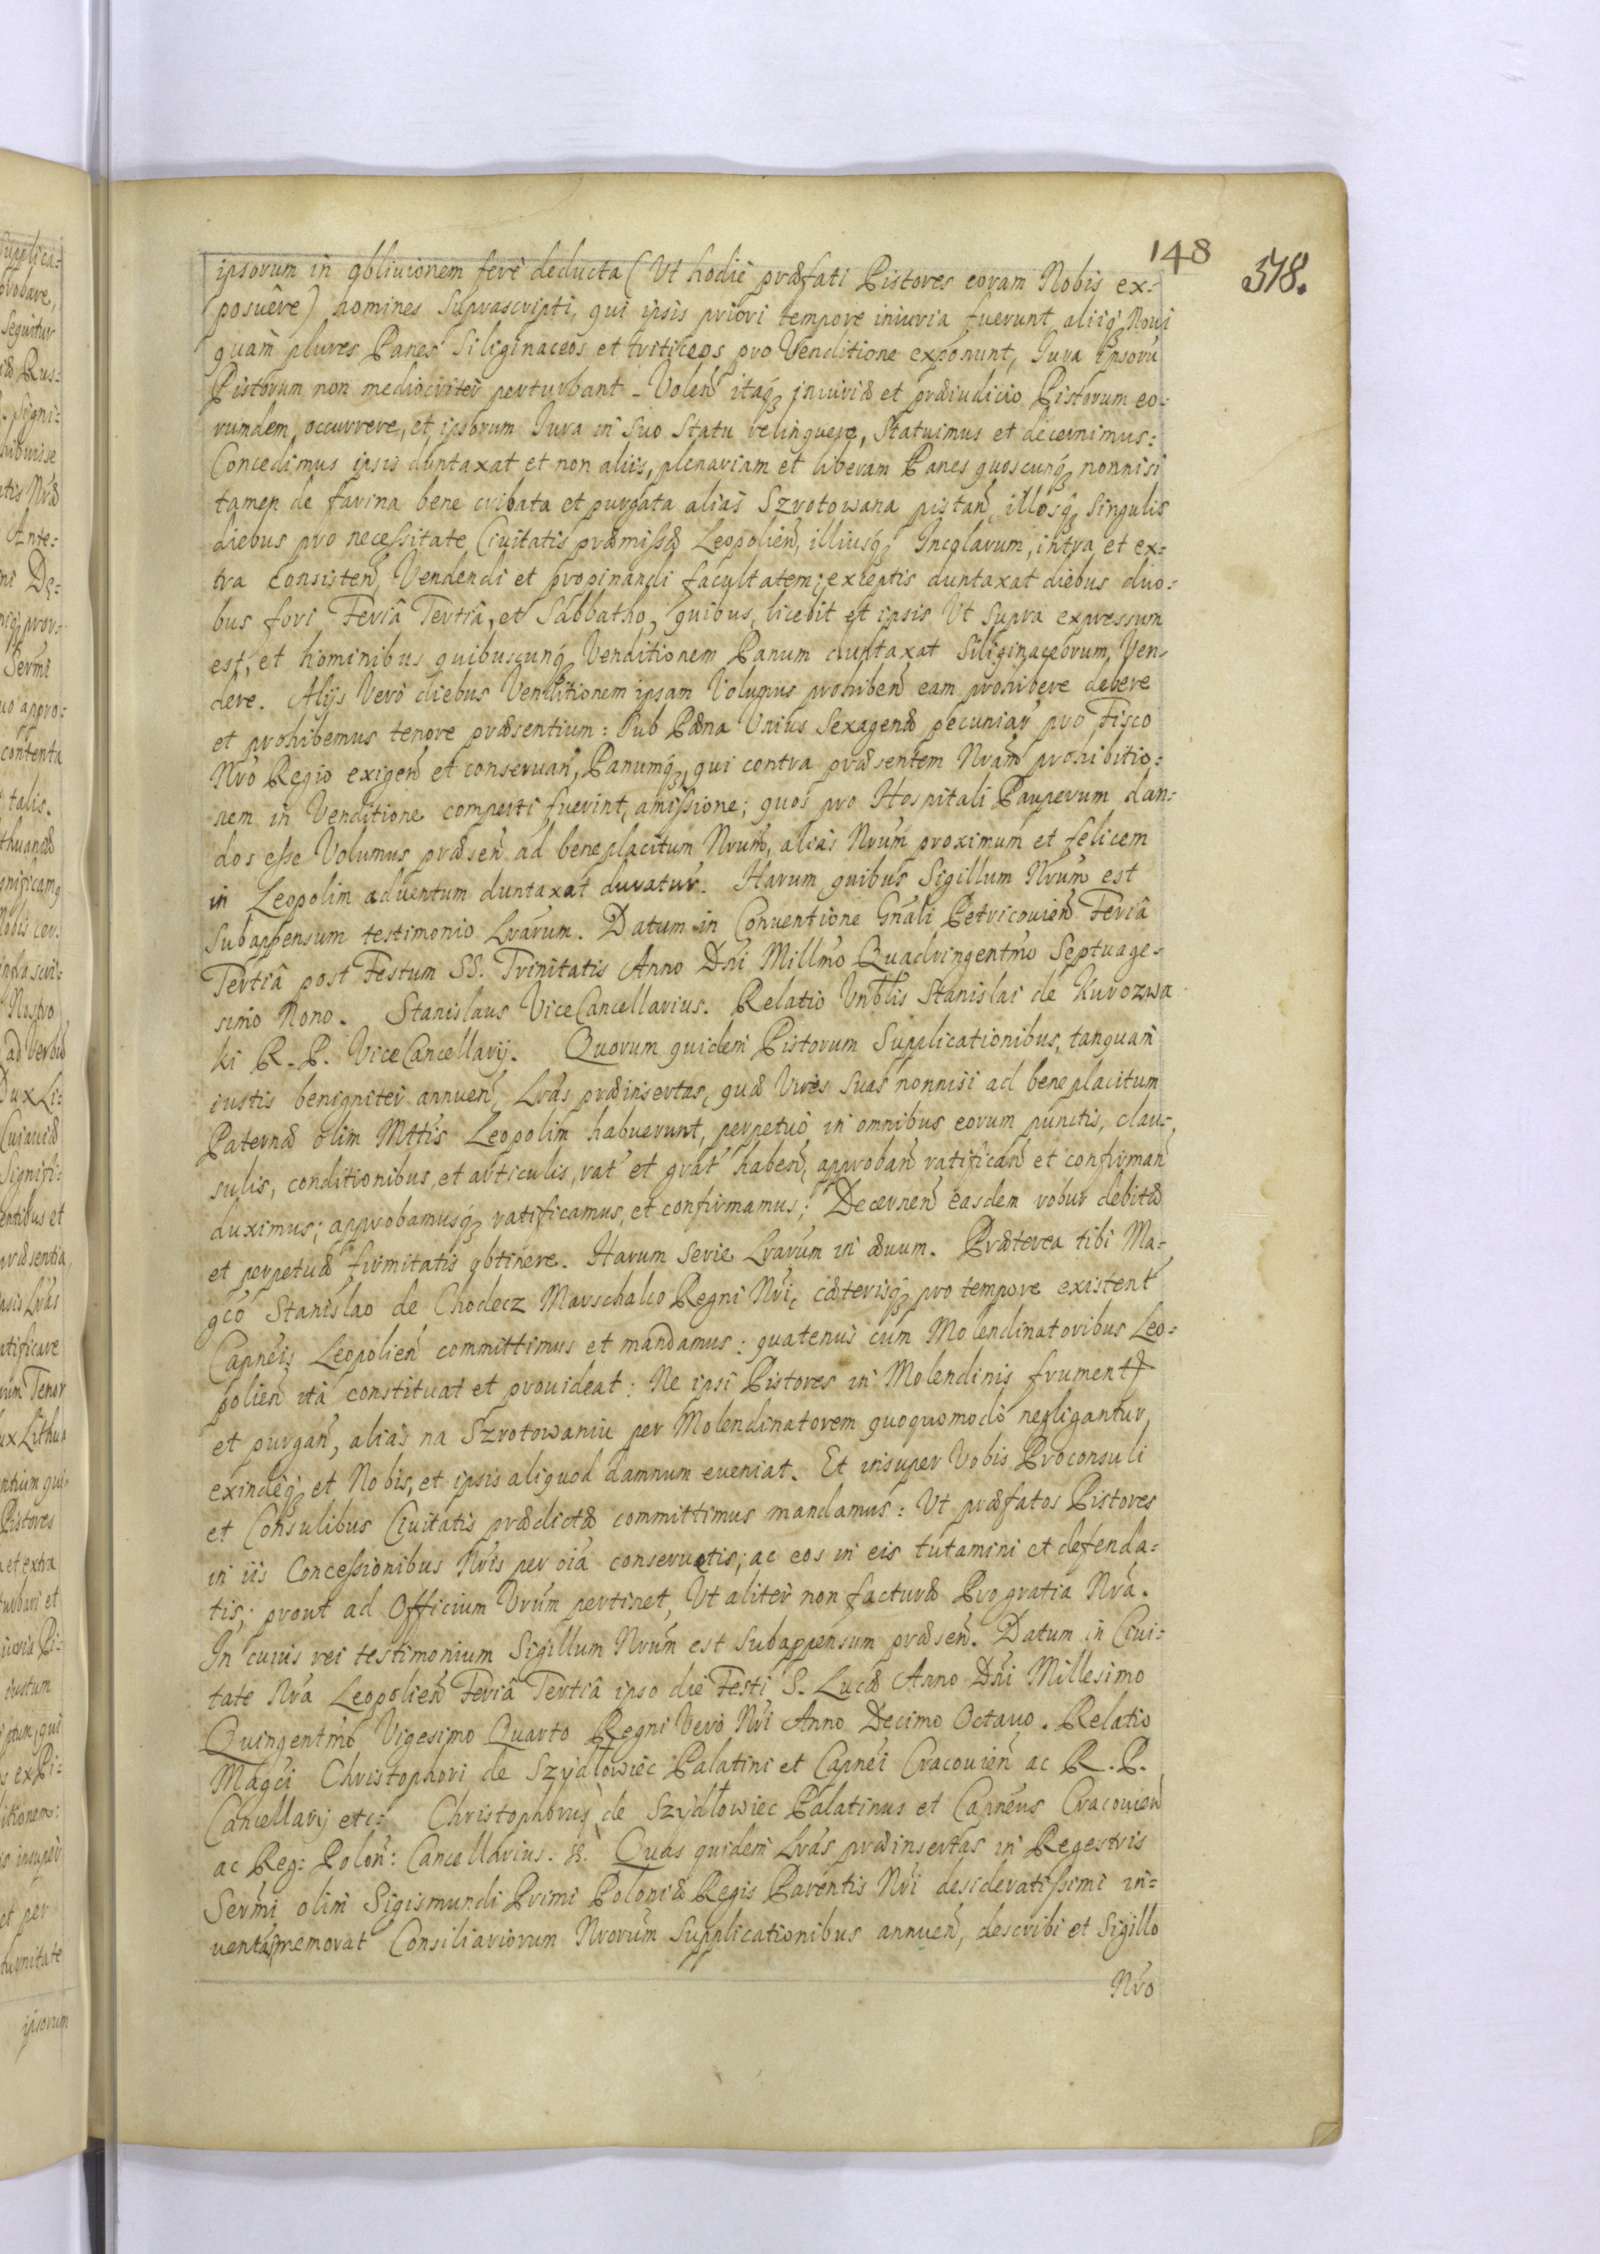 148
578.
ipsorum in obliuionem ferè deducta (Vt hodiè præfati Pistores coram Nobis ex-
posuêre) homines Suprascripti, qui ipsis priori tempore iniuria fuerunt aliiq₃ Noui
quàm plures Panes Siliginaceos et triticeos pro Venditione exponunt, Iura ipsorũ
Pistorum non mediocriter perturbant. Volen̄ itaq₃ iniuriæ et præiudicio Pistorum eo-
rumdem occurrere, et ipsorum Iura in Suo Statu relinquere, Statuimus et decernimus:
Concedimus ipsis duntaxat et non aliis, plenariam et liberam Panes quoscunq₃ nonnisi
tamen de farina bene cribata et purgata aliàs Szrotowana pistan̄, illosq₃ Singulis
diebus pro necessitate Ciuitatis præmissæ Leopolien̄, illiusq₃ Incolarum, intra et ex-
tra consisten̄ Vendendi et propinandi facultatem; exceptis duntaxat diebus duo-
bus fori Feriâ Tertiâ, et Sabbatho, quibus licebit et ipsis Vt Supra expressum
est, et hominibus quibuscunq₃ Venditionem Panum duntaxat Siliginaceorum, Ven-
dere. Alijs Verò diebus Venditionem ipsam Volumus prohiben̄ eam prohibere debere
et prohibemus tenore præsentium: Sub Pæna Vnius Sexagenæ pecuniar̄ pro Fisco
Nr̃o Regio exigen̄ et conseruan̄, Panumq₃, qui contra præsentem Nr̃am prohibitio-
nem in Venditione comperti fuerint, amissione; quos pro Hospitali Pauperum dan-
dos esse Volumus præsen̄ ad beneplacitum Nr̃um, aliàs Nr̃um proximum et felicem
in Leopolim aduentum duntaxat duratur̄. Harum quibus Sigillum Nr̃um est
Subappensum testimonio Lr̃arum. Datum in Conuentione Gñali Petricouien̄ Feriâ
Tertiâ post Festum SS. Trinitatis Anno Dñi Millm̃o Quadringentm̃o Septuage-
simo Nono. Stanislaus ViceCancellarius. Relatio Vnb̃lis Stanislai de Kurozwa
ki R. P. ViceCancellarij. Quorum quidem Pistorum Supplicationibus, tanquam
iustis benigniter annuen̄, Lr̃as præinsertas, quæ Vires Suas nonnisi ad beneplacitum
Paternæ olim Mttis Leopolim habuerunt, perpetuò in omnibus eorum punctis, clau-
sulis, conditionibus, et articulis, rat̄ et grat̄ haben̄, approban̄ ratifican̄ et confirman̄
duximus; approbamusq₃ ratificamus, et confirmamus; Decernen̄ easdem robur debitæ
et perpetuæ firmitatis obtinere. Harum Serie Lr̃arum in æuum. Præterea tibi Ma-
gco Stanislao de Chodecz Marschalco Regni Nr̃i, cæterisq₃ pro tempore existent̄
Capneis Leopolien̄ committimus et mandamus: quatenus cum Molendinatoribus Leo-
polien̄ ità constituat et prouideat: Ne ipsi Pistores in Molendinis frument
et purgan̄, aliàs na Szrotowaniu per Molendinatorem quoquomodò negligantur,
exindeq₃ et Nobis, et ipsis aliquod damnum eueniat. Et insuper Vobis Proconsuli
et Consulibus Ciuitatis prædictæ committimus mandamus: Vt præfatos Pistores
in iis Concessionibus Nr̃is per oĩa conseruetis; ac eos in eis tutamini et defenda-
tis; prout ad Officium Vr̃um pertinet, Vt aliter non facturæ Pro gratia Nr̃a.
In cuius rei testimonium Sigillum Nr̃um est Subappensum præsen̄. Datum in Ciui-
tate Nr̃a Leopolien̄ Feriâ Tertiâ ipso die Festi S. Lucæ Anno Dñi Millesimo
Quingentm̃o Vigesimo Quarto Regni Verò Nr̃i Anno Decimo Octauo. Relatio
Magci Christophori de Szydłowiec Palatini et Capnei Cracouien̄ ac R. P.
Cancellarij etc: Christophorus de Szydłowiec Palatinus et Capneus Cracouien̄
ac Reg: Polon̄: Cancellarius. ss. Quas quidem Lr̃as præinsertas in Regestris
Serm̃i olim Sigismundi Primi Poloniæ Regis Parentis Nr̃i desideratissimi in-
uentas memorat̄ Consiliariorum Nr̃orum Supplicationibus annuen̄, describi et Sigillo
Nr̃o